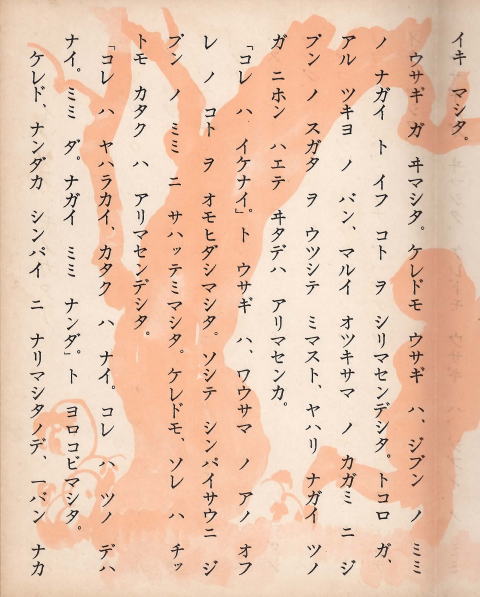 イキ マシタ。
ウサギ ガ ヰマシタ。ケレドモ ウサギ ハ、ジブン ノ ミミ
ノ ナガイ ト イフ コト ヲ シリマセンデシタ。トコロ ガ、
アル ツキヨ ノ バン、マルイ オツキサマ ノ カガミ ニ ジ
ブン ノ スガタ ヲ ウツシテ ミマスト、ヤハリ ナガイ ツノ
ガ ニホン ハエテ ヰタデハ アリマセンカ。
「コレ ハ、イケナイ」。ト ウサギ ハ、ワウサマ ノ アノ オフ
レ ノ コト ヲ オモヒダシマシタ。ソシテ シンパイサウニ ジ
ブン ノ ミミ ニ サハッテミマシタ。ケレドモ、ソレ ハ チッ
トモ カタク ハ アリマセンデシタ。
「コレ ハ ヤハラカイ、カタク ハ ナイ。コレ ハ ツノ デハ
ナイ。ミミ ダ。ナガイ ミミ ナンダ」。ト ヨロコビマシタ。
ケレド、ナンダカ シンパイ ニ ナリマシタノデ、一バン ナカ